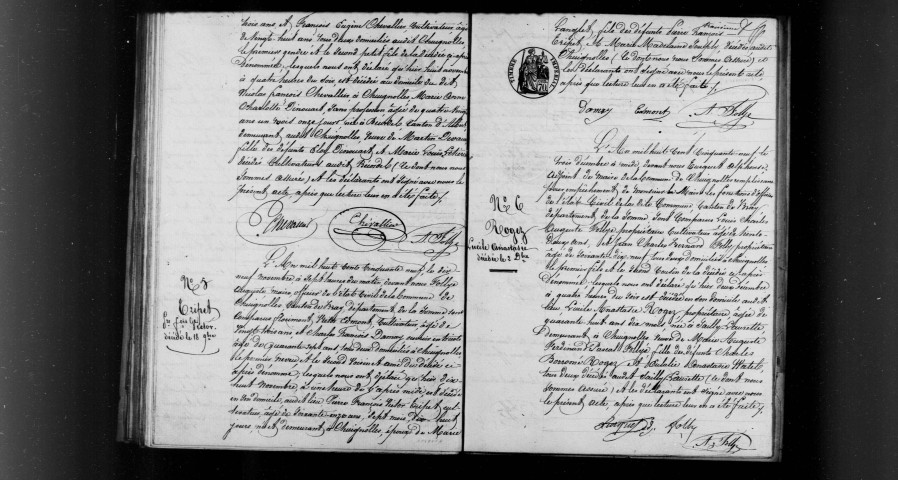 trois ans et François Eugène Chevallier, Cultivateur âgé
de Vingt huit ans tous deux domiciliés audit Chuignolles,
le premier gendre et le second petit fils de la décédée ci après
dénommée, lesquels nous ont déclaré qu'hier huit novembre
à quatre heures du soir est décédée au domicile du dit
Nicolas François Chevallier à Chuignolles Marie Anne
Charlotte Dinouart, Sans profession âgée de quatre vingt
ans un mois onze jours née à
demeurant audit Chuignolles, Veuve de Martin
fille des défunts Eloy Dinouart et Marie Louise
décédés Cultivateurs audit (Ce dont nous nous
sommes assuré) et les déclarants ont signé avec nous le
présent acte après que lecture leur en a été faite /.
Chevallier
A Follye
N° 5
Tripet
Pre François Victor
décédé le 18 9bre
L'An mil huit cent Cinquante neuf le dix
neuf novembre à Sept heures du matin devant nous Follye
Auguste maire officier de l'état Civil de la Commune de
Chuignolles Canton de Bray département de la Somme sont
Comparus Edmont, Cultivateur, âgé de
Vingt trois ans et Charles François Damay
âgé de quarante sept ans tous deux domiciliés à Chuignolles
le premier neveu et le second Voisin et ami du décédé ci
après dénommé, lesquels nous ont déclaré que hier dix
huit novembre, à une heure de l'après midi, est décédé
en son domicile, audit lieu Pierre François Victor Tripet cul-
tivateur, âgé de Soixante onze ans, Sept mois Dix huit
jours né et demeurant à Chuignolles, époux de Marie
fils des défunts Pierre François
Tripet, et Marie Madelaine décédés audit
Chuignolles (Ce dont nous nous sommes assuré) et
les déclarants ont signé avec nous le présent acte
après que lecture leur en a été faite /.
TIMBRE IMPERIAL
Damay Edmont A Follye
N° 6
Rogez
Lucile Anastasie
décédée le 2 Xbre
L'An mil huit Cent Cinquante neuf le
trois décembre à midi, devant nous
Adjoint du maire de la Commune de Chuignolles remplissant
pour empêchement de monsieur le Maire les fonctions d'officier
de l'état Civil de la dite Commune Canton de Bray
département de la Somme Sont Comparus Louis Charles
Auguste Follye propriétaire Cultivateur âgé de trente
Deux ans et Jean Charles Follye propriétaire
âgé de Soixante dix neuf ans tous deux domiciliés à Chuignolles
le premier fils et le second de la décédée ci après
dénommée, lesquels nous ont déclaré que hier deux décembre
à quatre heures du soir est décédée en son domicile audit
lieu Lucile Anastasie Rogez propriétaire âgée de
quarante huit ans dix mois née à Sailly Laurette,
demeurant à Chuignolles Veuve de Marie Auguste
Ferdinand Follye fille des défunts Charles
Borromé Rogez et Eulalie Anastasie
tous deux décédés audit Sailly Laurette (Ce dont nous
sommes assuré) et les déclarants ont signé avec nous
le présent acte après que lecture leur en a été faite /.
Follye
A Follye